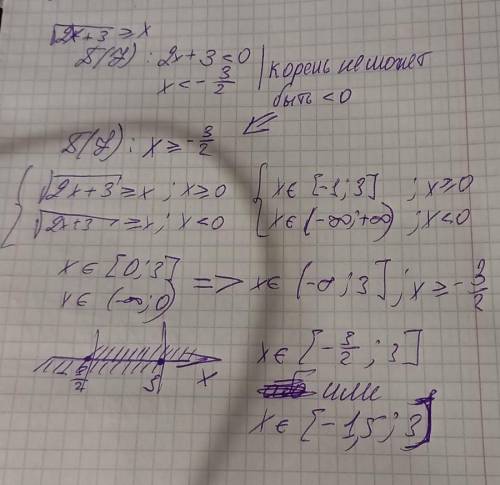 √2x+3 ≥ x
D(y): 2x+3<0
x<-3/2
корень не может
быть <0
D(y): x≥-3/2
{ √2x+3 ≥ x; x≥0
√2x+3 ≥ x; x<0
{ x∈[-1;3] ; x≥0
x∈(-∞;+∞) ; x<0
x∈[0;3]
x∈(-∞;0)
=> x∈(-∞;3]; x≥-3/2
x
x∈[-3/2;3]
или
x∈[-1,5;3]